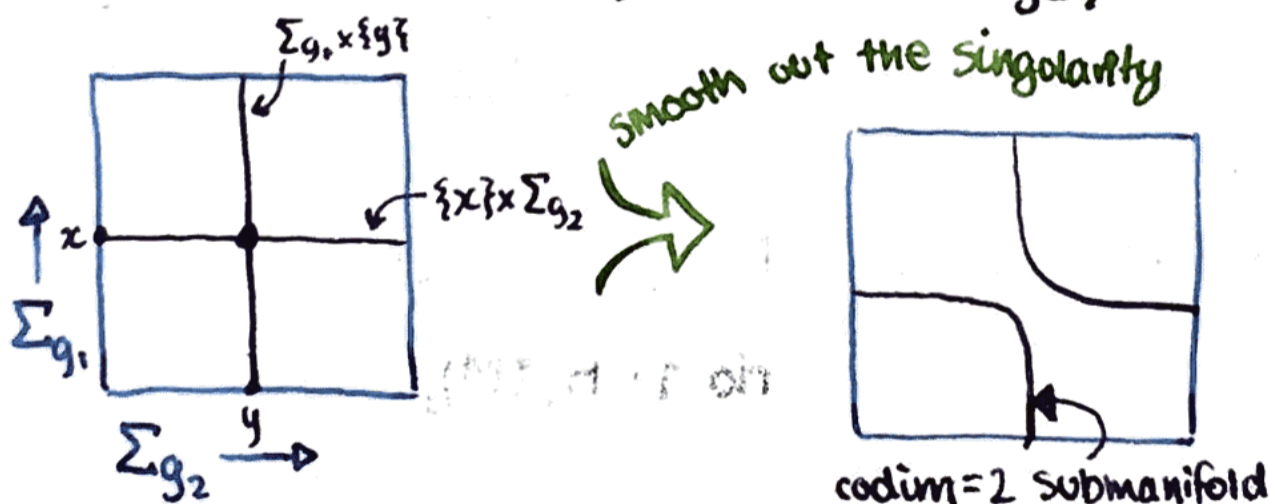 Σg₁×{y}
smooth out the singolarity
x
{x}×Σg₂
Σg₁
y
Σg₂
codim=2 submanifold